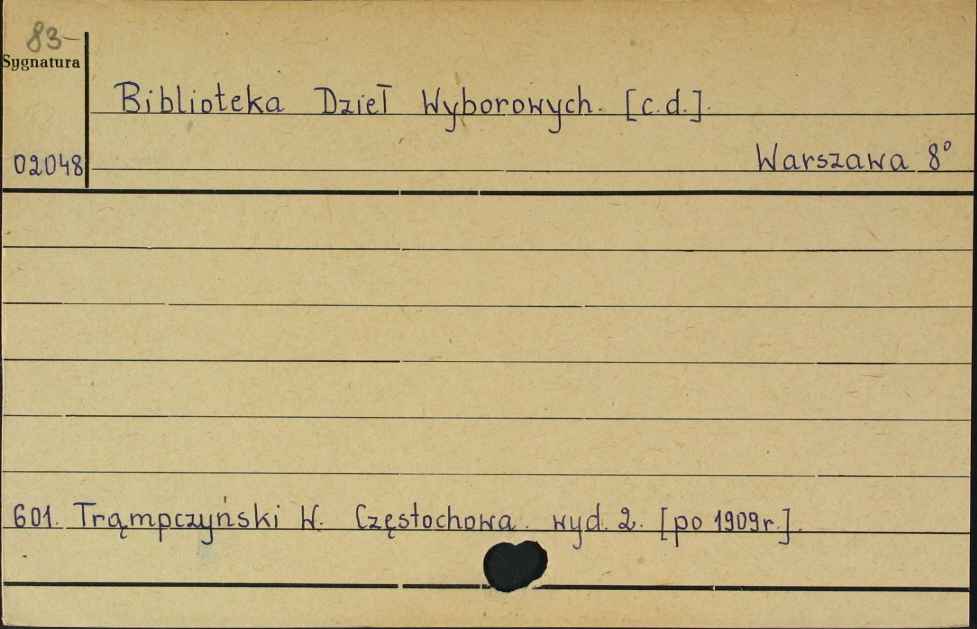 83-
Sygnatura
Biblioteka Dzieł Wyborowych. [c.d.].
02048
Warszawa 8°
601. Trąmpczyński W. Częstochowa. wyd. 2. [po 1909r.].